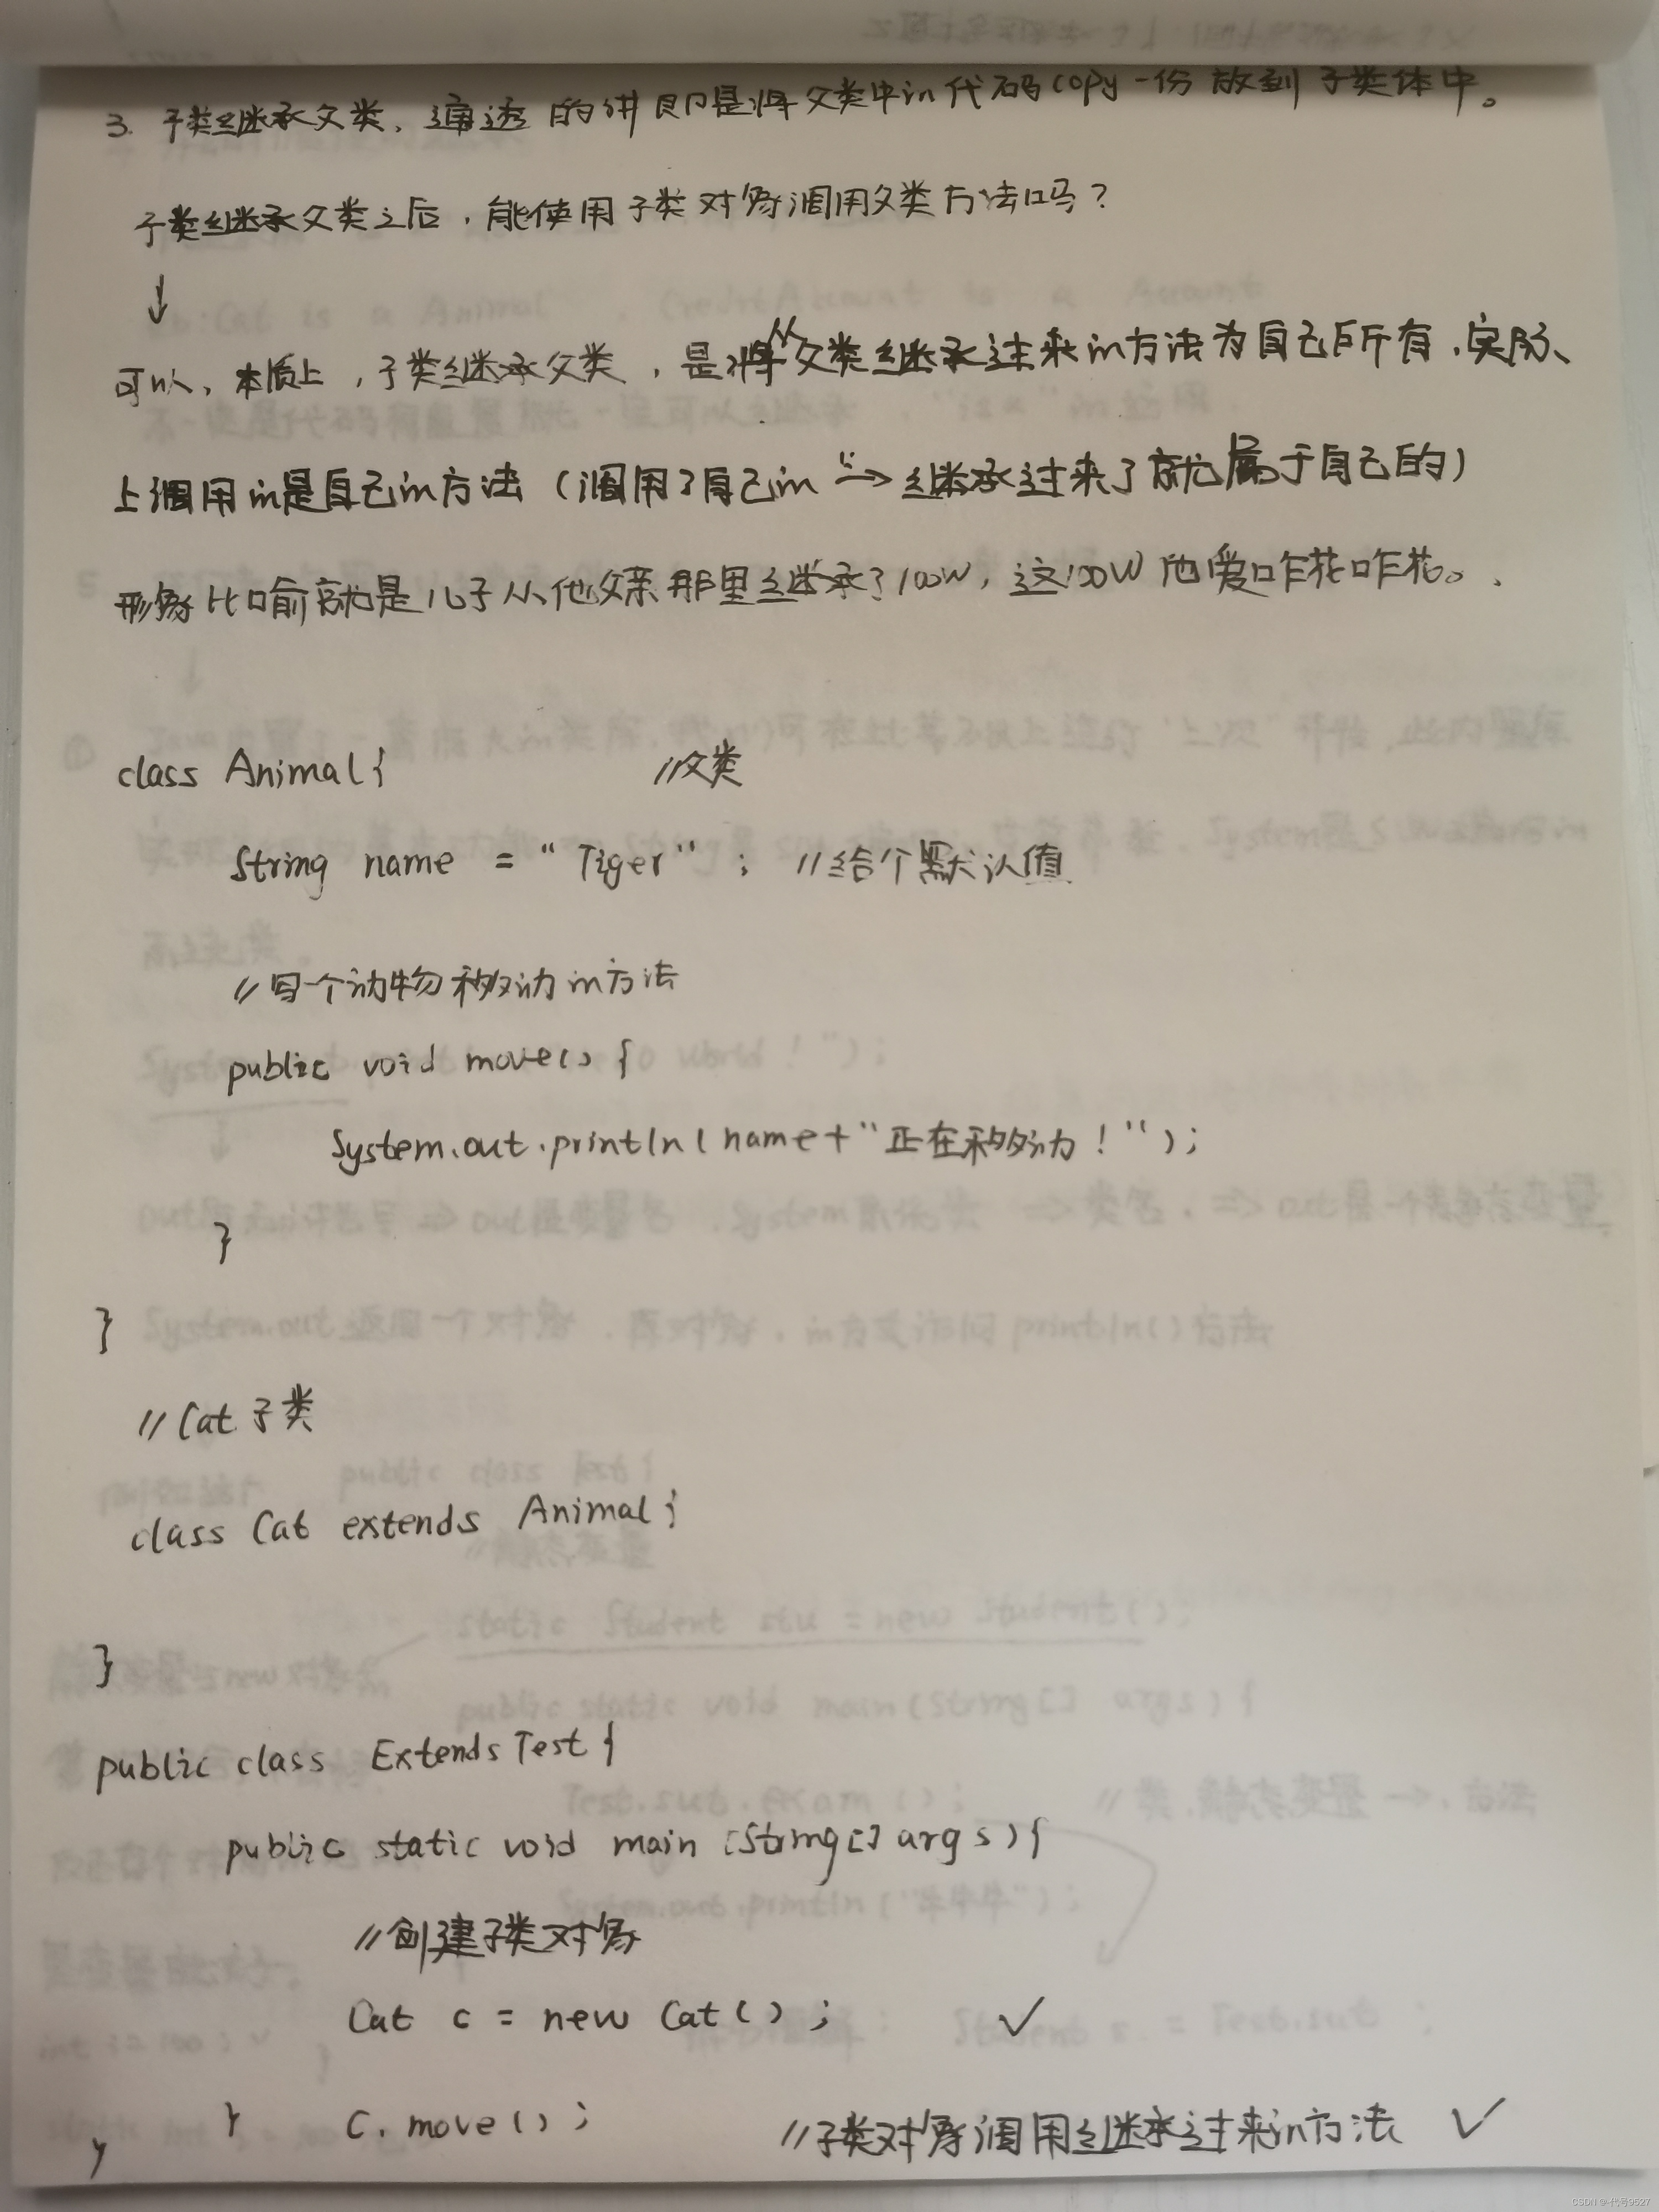 3. 子类继承父类,通透的讲即是将父类中的代码copy一份放到子类体中。
子类继承父类之后,能使用子类对象调用父类方法吗?
↓
可以,本质上,子类继承父类,是将从父类继承过来的方法为自己所有,实际
上调用的是自己的方法(调用了自己的"→继承过来了就属于自己的)
形象比喻就是儿子从他父亲那里继承了100W,这100W他爱咋花咋花。
class Animal{ //父类
String name = "Tiger"; //给个默认值
//写个动物移动的方法
public void move(){
System.out.println(name+"正在移动!");
}
}
//Cat子类
class Cat extends Animal{
}
public class ExtendsTest{
public static void main(String[] args){
//创建子类对象
Cat c = new Cat(); ✓
} c.move(); //子类对象调用继承过来的方法 ✓
}
CSDN @-代号9527